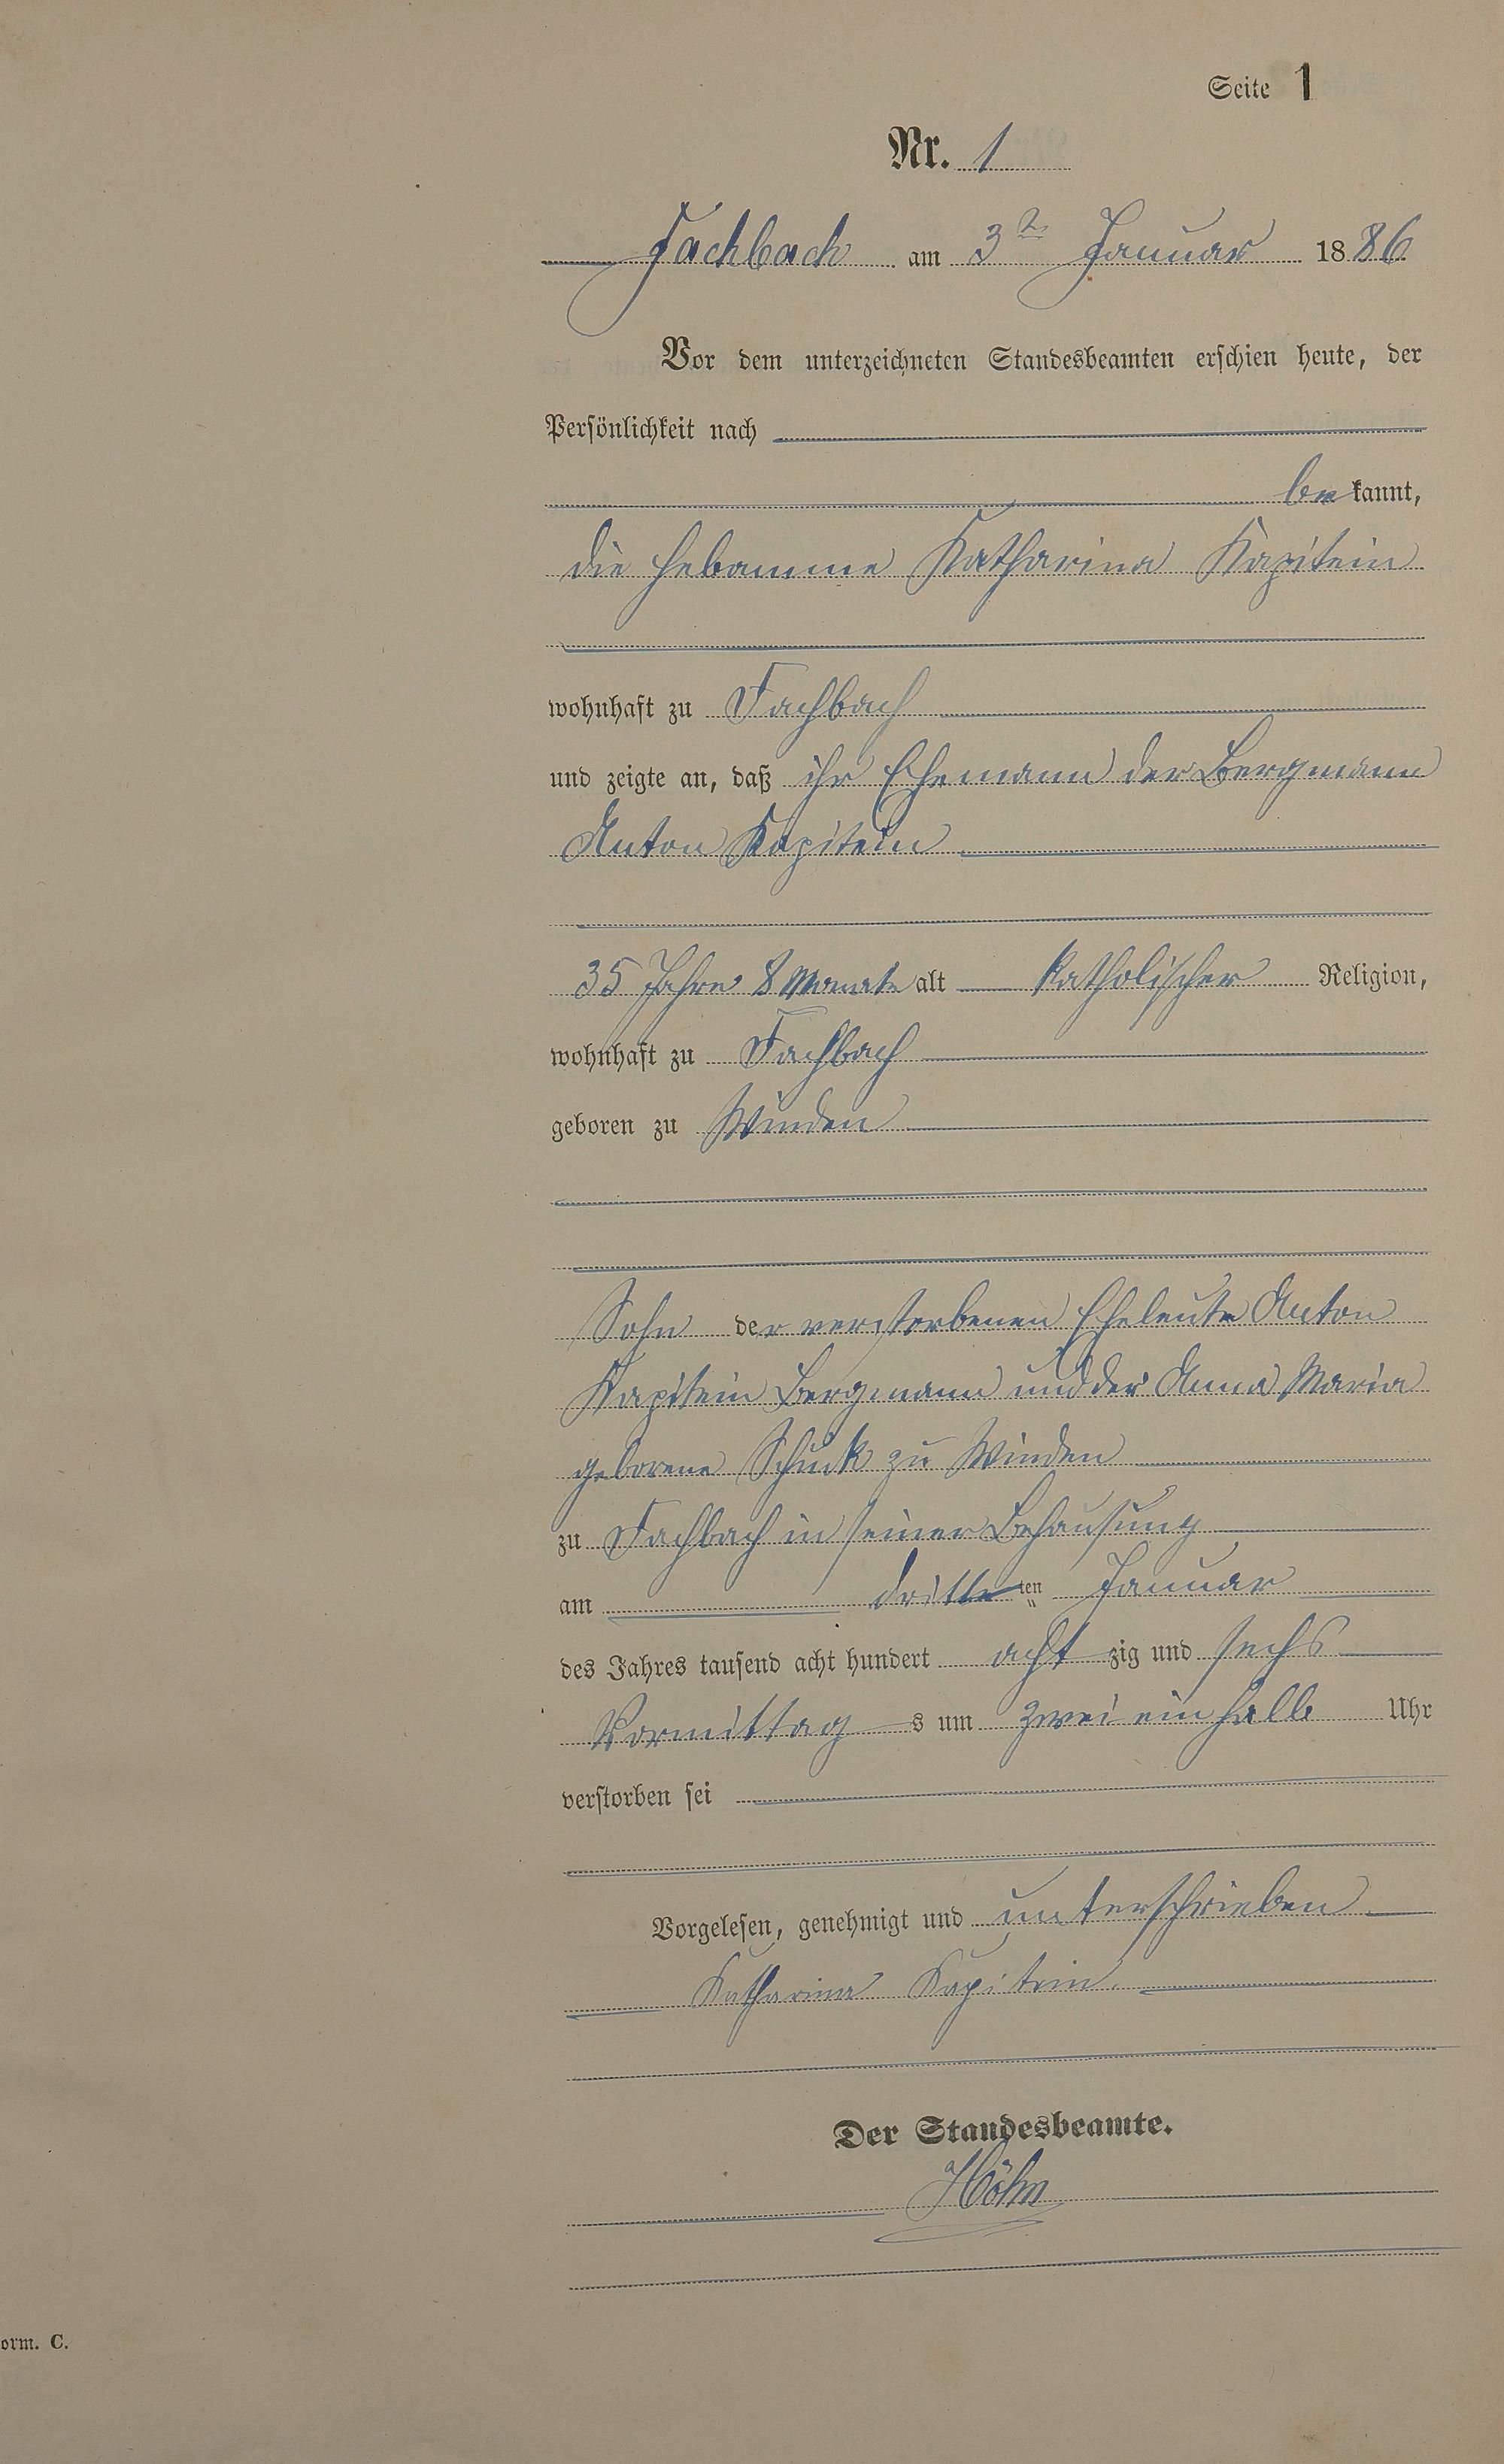 Seite 1
Nr. 1
Fachbach am 3ten Januar 1886
Vor dem unterzeichneten Standesbeamten erschien heute, der
Persönlichkeit nach
be kannt,
die Hebamme Katharina Kapitein
wohnhaft zu Fachbach
und zeigte an, daß ihr Ehemann der Bergmann
Anton Kapitein
35 Jahre 8 Monate alt katholischer Religion,
wohnhaft zu Fachbach
geboren zu Winden
Sohn der verstorbenen Eheleute Anton
Kapitein Bergmann und der Anna Maria
geborene Schuck zu Winden
zu Fachbach in seiner Behausung
am dritten Januar
des Jahres tausend acht hundert acht zig und sechs
Vormittag s um zwei ein halb Uhr
verstorben sei
Vorgelesen, genehmigt und unterschrieben
Katharina Kapitein.
Der Standesbeamte.
Höhn
orm. C.